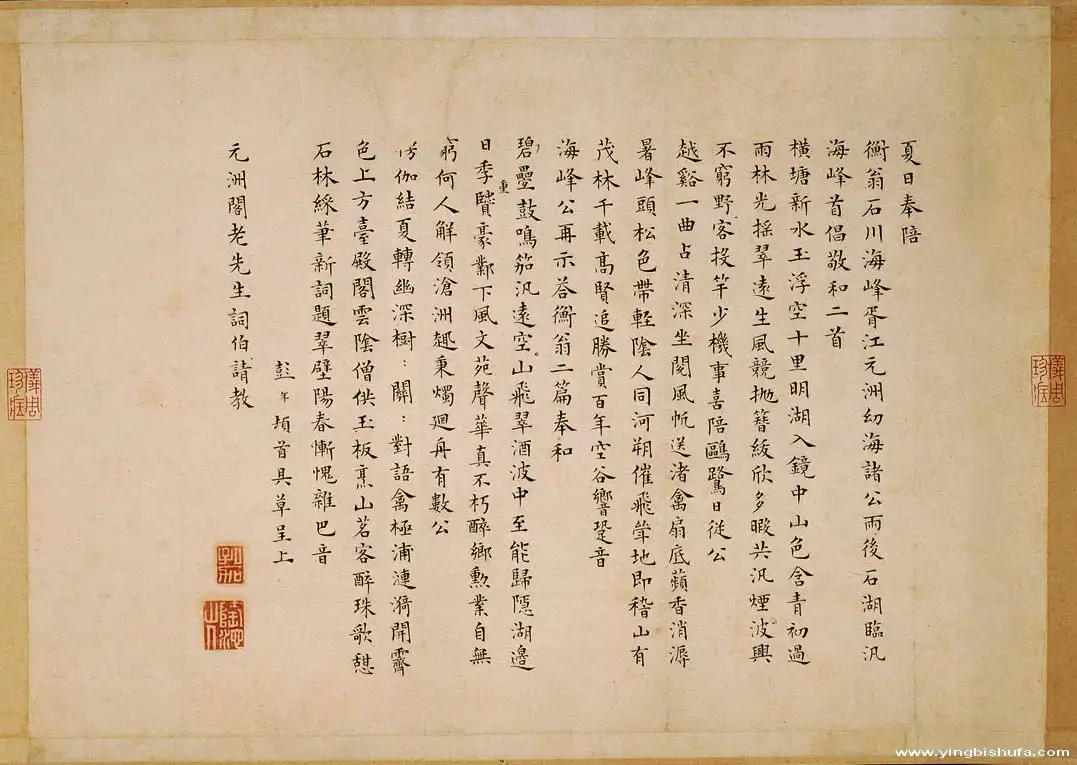 夏日奉陪
衡翁石川海峰胥江元洲幼海諸公雨後石湖臨汎
海峰首倡敬和二首
橫塘新水玉浮空十里明湖入鏡中山色含青初過
雨林光搖翠遠生風競拋簪紱欣多暇共汎煙波興
不窮野客投竿少機事喜陪鷗鷺日從公
越谿一曲占清深坐閱風帆送渚禽扇底蘋香消溽
暑峰頭松色帶輕陰人同河朔催飛斝地即稽山有
茂林千載高賢追勝賞百年空谷響跫音
海峰公再示荅衡翁二篇奉和
碧疊鼓鳴笳汎遠空山飛翠酒波中至能歸隱湖邊
重
日季豪鄴下風文苑聲華真不朽醉鄉勲業自無
窮何人解領滄洲趣秉燭迴舟有數公
伽結夏轉幽深樹：關：對語禽極浦漣漪開霽
色上方臺殿閣雲陰僧供玉板烹山茗客醉珠歌憇
石林綵筆新詞題翠壁陽春慚愧雜巴音
彭年頓首具草呈上
元洲閣老先生詞伯請教
孔加
www.yingbishufa.com